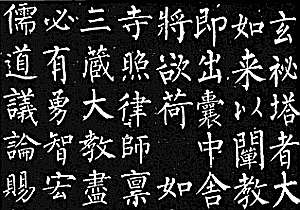 玄祕塔者大
如来以闡教
即出囊中舍
將欲荷 如
寺照律師稟
三藏大教盡
必有勇智宏
儒道議論賜